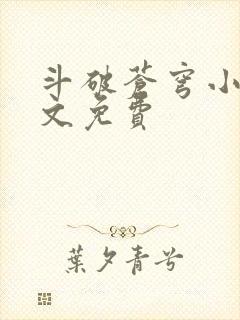 斗破苍穹小
文免費
葉夕青兮